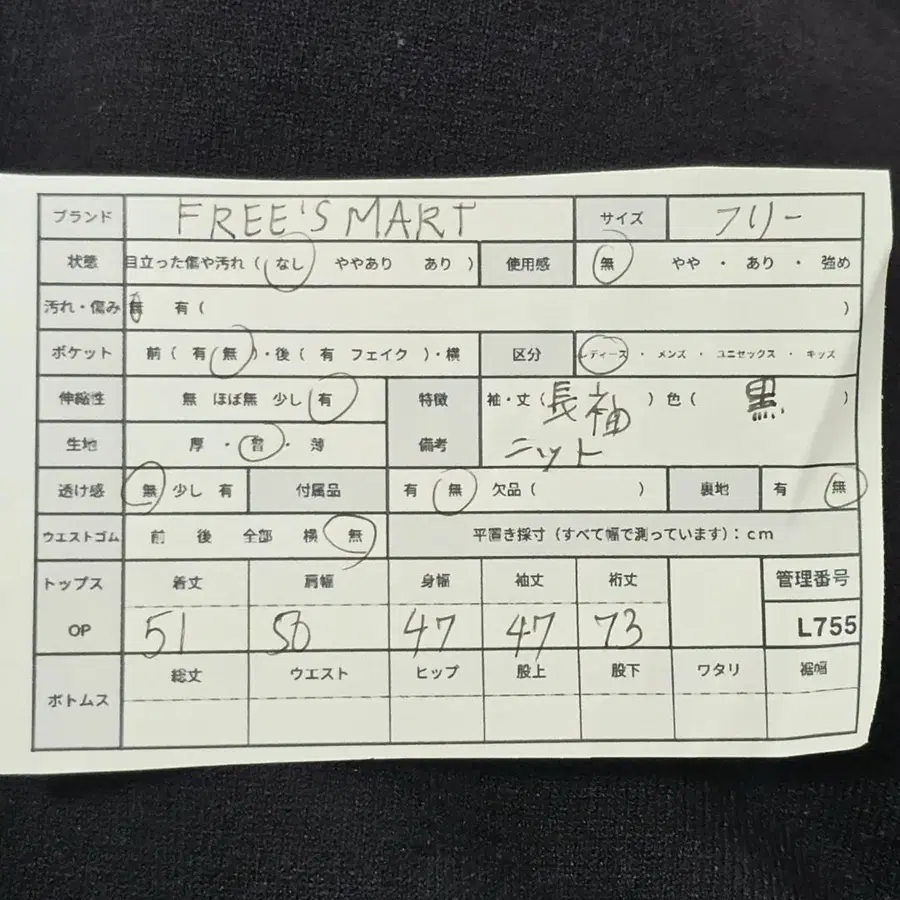 ブランド FREE'S MART サイズ フリー
状態 目立った傷や汚れ ( なし ややあり あり ) 使用感 無 やや ・ あり ・ 強め
汚れ・傷み 無 有 ( )
ポケット 前 ( 有 無 )・後 ( 有 フェイク )・横 区分 レディース ・ メンズ ・ ユニセックス ・ キッズ
伸縮性 無 ほぼ無 少し 有 特徴 袖・丈 ( 長袖 ) 色 ( 黒 )
生地 厚 ・ 普 ・ 薄 備考 ニット
透け感 無 少し 有 付属品 有 無 欠品 ( ) 裏地 有 無
ウエストゴム 前 後 全部 横 無 平置き採寸 (すべて幅で測っています) : cm
トップス 着丈 肩幅 身幅 袖丈 裄丈 管理番号
OP 51 50 47 47 73 L755
ボトムス 総丈 ウエスト ヒップ 股上 股下 ワタリ 裾幅